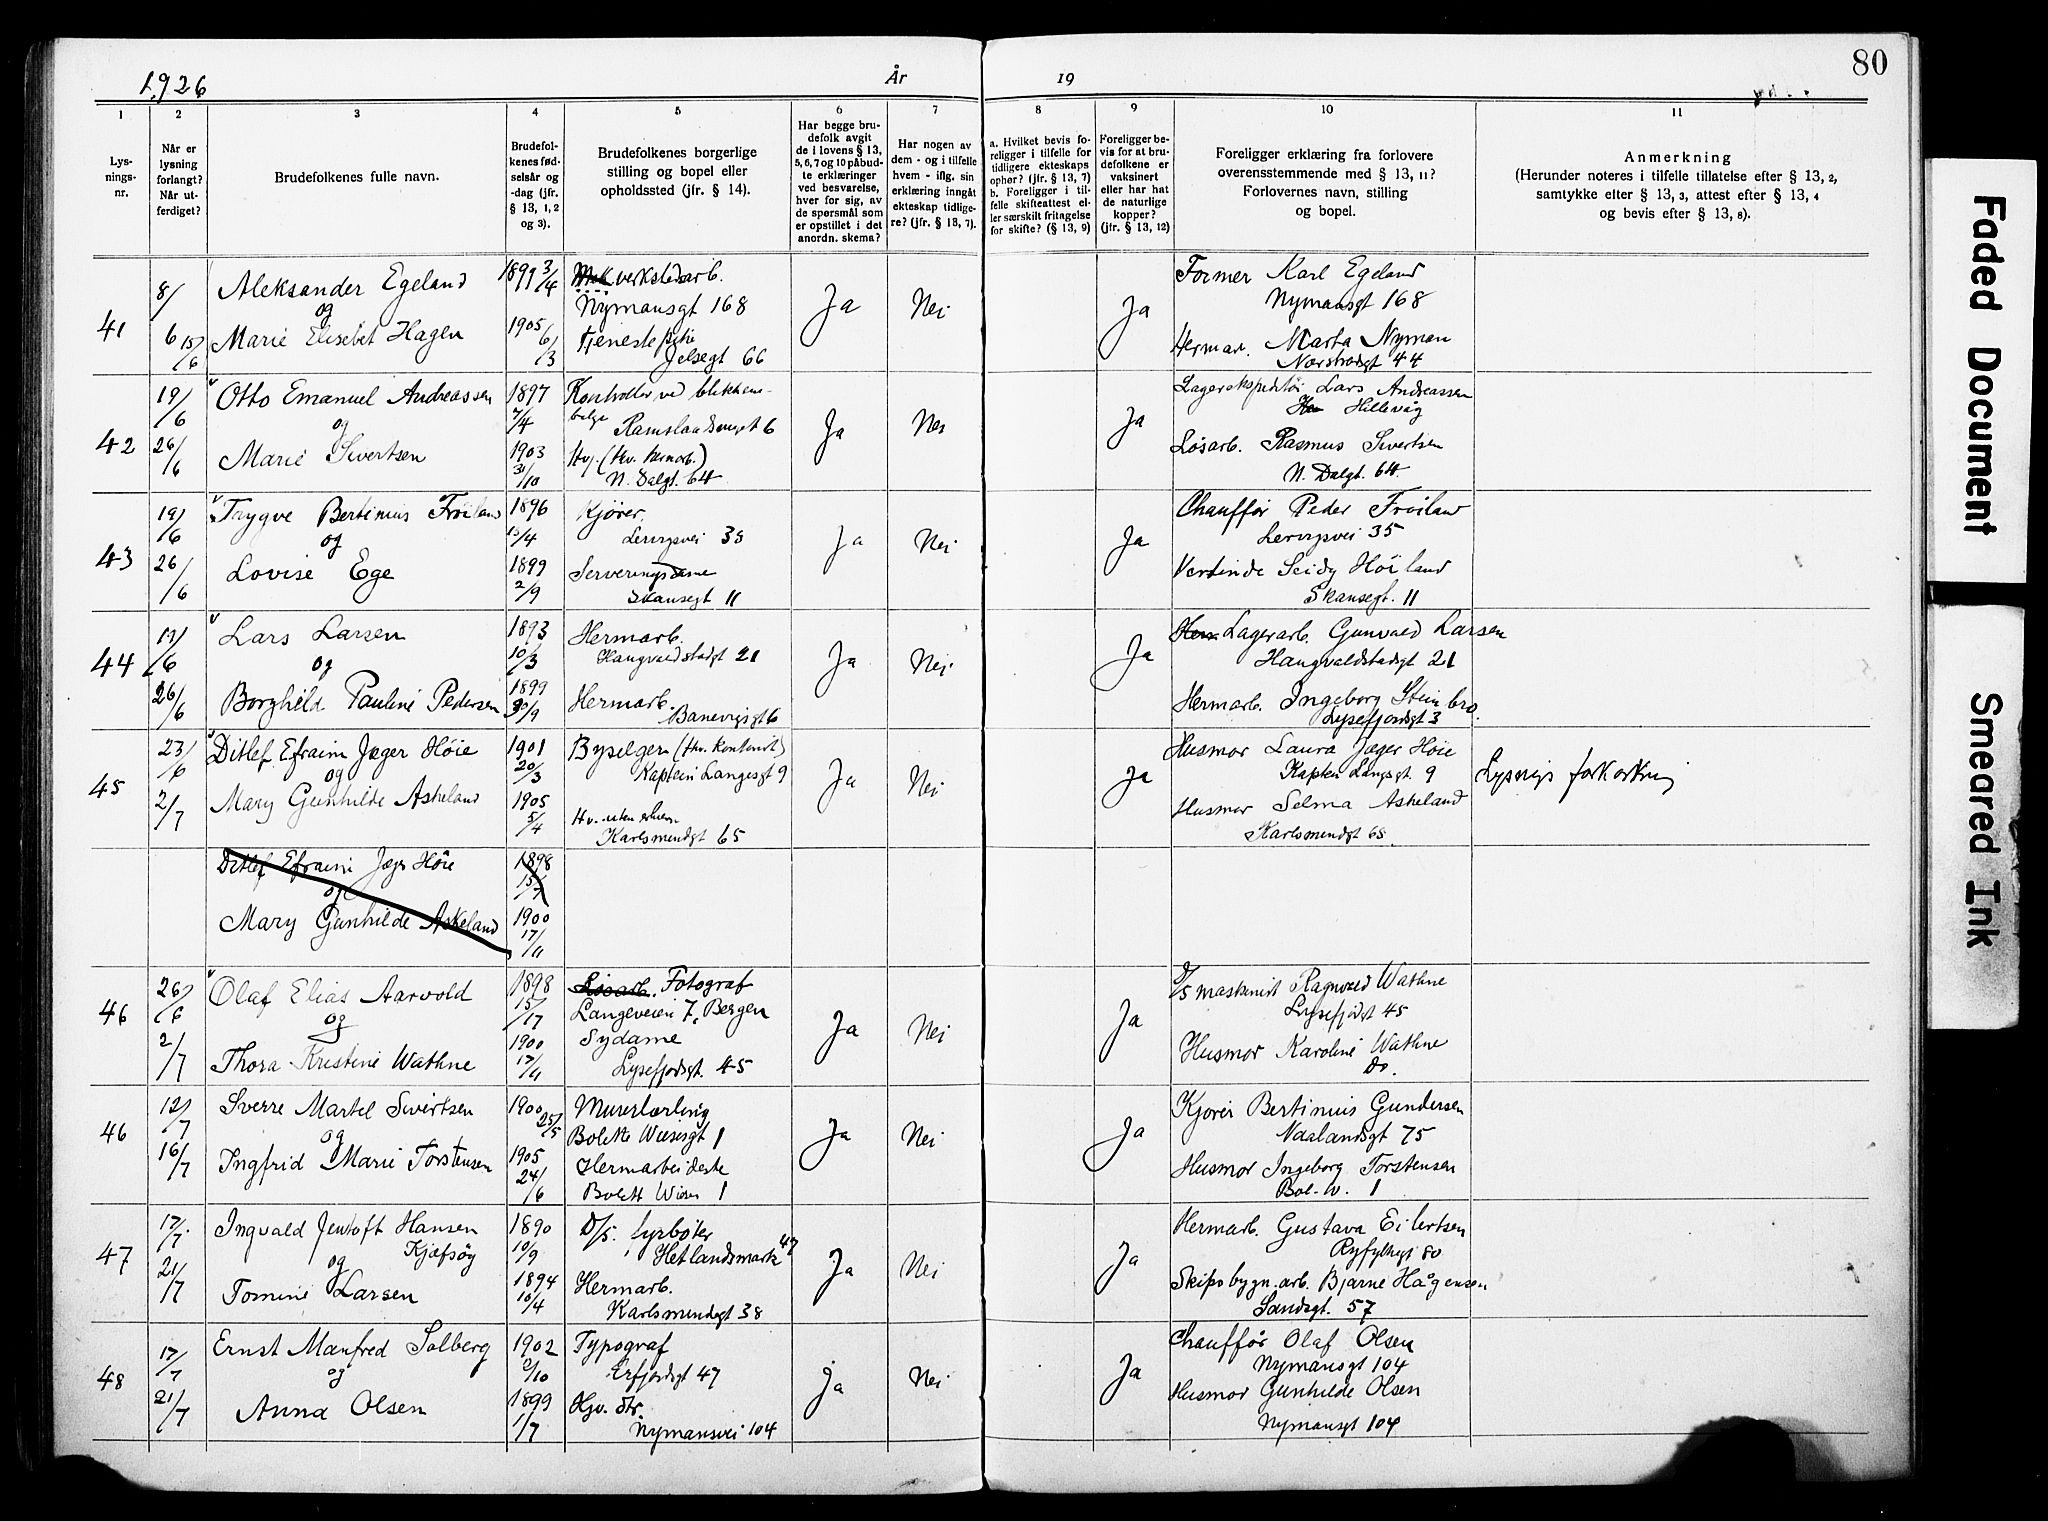 1926
År
19
80
1
2
3
4
5
6
7
8
9
10
11
Lys-
nings-
nr.
Når er
lysning
forlangt?
Når ut-
ferdiget?
Brudefolkenes fulle navn.
Brudefol-
kenes fød-
selsår og
-dag (jfr.
§ 13, 1, 2
og 3).
Brudefolkenes borgerlige
stilling og bopel eller
opholdssted (jfr. § 14).
Har begge bru-
defolk avgit
de i lovens § 13,
5, 6, 7 og 10 påbud-
te erklæringer
ved besvarelse,
hver for sig, av
de spørsmål som
er opstillet i det
anordn. skema?
Har nogen av
dem - og i tilfelle
hvem - iflg. sin
erklæring inngått
ekteskap tidlige-
re? (jfr. § 13, 7).
a. Hvilket bevis fo-
religger i tilfelle for
tidligere ekteskaps
ophør? (jfr. § 13, 7)
b. Foreligger i til-
felle skifteattest el-
ler særskilt fritagelse
for skifte? (§ 13, 9)
Foreligger be-
vis for at bru-
defolkene er
vaksinert
eller har hat
de naturlige
kopper?
(jfr. § 13, 12)
Foreligger erklæring fra forlovere
overensstemmende med § 13, 11?
Forlovernes navn, stilling
og bopel.
Anmerkning
(Herunder noteres i tilfelle tillatelse efter § 13, 2,
samtykke efter § 13, 3, attest efter § 13, 4
og bevis efter § 13, 8).
41
8/6
15/6
Aleksander Egeland
og
Marie Elisebet Hagen
1899 3/4
1905
6/3
Mek verkstedsarb.
Nymansgt 168
Tjenestepike
Jelsegt 66
Ja
Nei
Ja
Former Karl Egeland
Nymansgt 168
Hermar. Marta Nyman
Norstradgt 44
42
19/6
26/6
Otto Emanuel Andreassen
og
Marie Sivertsen
1897
7/4
1903
31/10
Kontrollør ved blikkem-
balge
Ramslandsveget 6
Hvj. (Hv. hermarb.)
N. Dalgt. 64
Ja
Nei
Ja
Lagerekspeditør Lars Andreassen
Hillevåg
Løsarb. Rasmus Sivertsen
N. Dalgt. 64
43
19/6
26/6
Trygve Bertinius Frøiland
og
Lovise Ege
1896
15/4
1899
2/9
Kjører
Lervigsvei 35
Serveringsdame
Skansegt 11
Ja
Nei
Ja
Chauffør Peder Frøiland
Lervigsvei 35
Vertinde Seidy Høiland
Skansegt. 11
44
19/6
26/6
Lars Larsen
og
Borghild Pauline Pedersen
1893
10/3
1899
30/9
Hermarb.
Haugvaldstadgt 21
Hermarb.
Banevigsgt 6
Ja
Nei
Ja
Lagerarb. Gunvald Larsen
Haugvaldstadgt 21
Hermarb. Ingeborg Steinbro
Lysefjordsgt 3
45
23/6
2/7
Ditlef Efraim Jæger Høie
og
Mary Gunhilde Askeland
1901
20/3
1905
5/4
Byselger (Hv. Kontorist)
Kaptein Langesgt 9
Hv. uten erhverv
Karlsmindegt 65
Ja
Nei
Ja
Husmor Laura Jæger Høie
Kaptein Langsgt. 9
Husmor Selma Askeland
Karlsmindgt 65
Lysnings forkortning
Ditlef Efraim Jæger Høie
og
Mary Gunhilde Askeland
1898
15/7
1900
17/11
46
26/6
2/7
Olaf Elias Aarvold
og
Thora Kristine Wathne
1898
15/17
1900
17/11
Løsarb. Fotograf
Langeveien 7, Bergen
Sydame
Lysefjordsgt. 45
Ja
Nei
Ja
D/S maskinist Ragnvald Wathne
Lysefjordgt 45
Husmor Karoline Wathne
Do.
46
12/7
16/7
Sverre Martel Sivertsen
og
Ingfrid Marie Torstensen
1900
25/5
1905
24/6
Murerlærling
Bolette Wiesesgt 1
Hermarbeiderske
Bolett Wieses 1
Ja
Nei
Ja
Kjører Bertinius Gundersen
Naalandsgt 75
Husmor Ingeborg Torstensen
Bol. W. 1
47
17/7
21/7
Ingvald Jentoft Hansen
Kjæfsøy
og
Tomine Larsen
1890
10/9
1894
16/4
D/S. fyrbøter
Hetlandsmark 47
Hermarb.
Karlsmindegt 38
Ja
Nei
Ja
Hermarb. Gustava Eilertsen
Ryfylkegt 80
Skipsbygn.arb. Bjarne Hågensen
Sandsgt. 57
48
17/7
21/7
Ernst Manfred Solberg
og
Anna Olsen
1902
2/10
1899
1/7
Typograf
Erfjordsgt 47
Hjv. dtr.
Nymansvei 104
Ja
Nei
Ja
Chauffør Olaf Olsen
Nymansgt 104
Husmor Gunhilde Olsen
Nymansgt 104
Faded Document
Smeared Ink